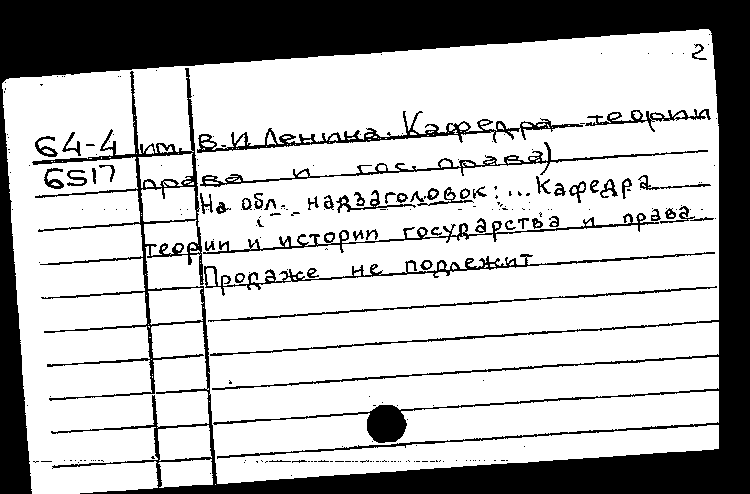 2
64-4 им. В.И Ленина. Кафедра теории
6517 права и гос. права)
На обл. надзаголовок: ... Кафедра
теории и истории государства и права
Продаже не подлежит